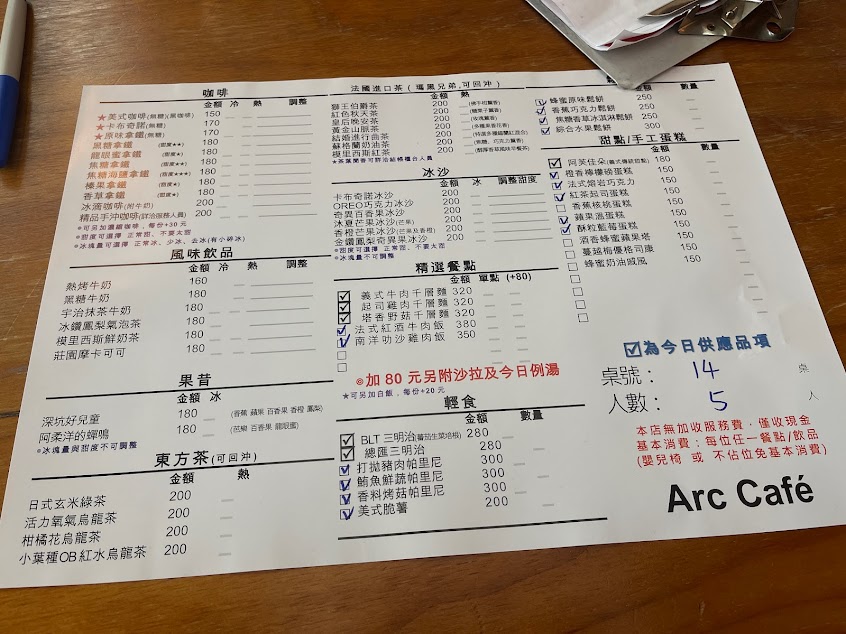 咖啡
金額 冷 熱 調整
★美式咖啡(無糖)(黑咖啡) 150
★卡布奇諾(無糖) 170
★原味拿鐵(無糖) 170
黑糖拿鐵 (甜度★★) 180
龍眼蜜拿鐵 (甜度★) 180
焦糖拿鐵 (甜度★★) 180
焦糖海鹽拿鐵 (甜度★★★) 180
榛果拿鐵 (甜度★) 180
香草拿鐵 (甜度★) 180
冰滴咖啡(附牛奶) 200
精品手沖咖啡(詳洽服務人員) 200
※可另加濃縮咖啡，每份+30元
※甜度可選擇 正常甜、不要太甜
※冰塊量可選擇 正常冰、少冰、去冰(有小碎冰)
風味飲品
金額 冷 熱 調整
熱烤牛奶 160
黑糖牛奶 180
宇治抹茶牛奶 180
冰鑽鳳梨氣泡茶 180
模里西斯鮮奶茶 180
莊園摩卡可可 180
果昔
金額 冰
深坑好兒童 180 (香蕉 蘋果 百香果 香橙 鳳梨)
阿柔洋的蟬鳴 180 (芭樂 百香果 龍眼蜜)
※冰塊量與甜度不可調整
東方茶(可回沖)
金額 熱
日式玄米綠茶 200
活力氧氣烏龍茶 200
柑橘花烏龍茶 200
小葉種OB紅水烏龍茶 200
法國進口茶(瑪黑兄弟,可回沖)
金額 熱
獅王伯爵茶 200 (佛手柑麗香)
紅色秋天茶 200 (糖栗子麗香)
皇后晚安茶 200 (玫瑰麗香)
黃金山脈茶 200
結婚進行曲茶 200
蘇格蘭奶油茶 200
模里西斯紅茶 200
★茶葉聞香可詳洽結帳櫃台人員
冰沙
金額 冰 調整甜度
卡布奇諾冰沙 200
OREO巧克力冰沙 200
奇異百香果冰沙 200
沐夏芒果冰沙(芒果) 200
香橙芒果冰沙(芒果及香橙) 200
金鑽鳳梨奇異果冰沙 200
※甜度可選擇 正常甜、不要太甜
※冰塊量不可調整
精選餐點
金額 單點 (+80)
義式牛肉千層麵 320
起司雞肉千層麵 320
塔香野菇千層麵 320
法式紅酒牛肉飯 380
南洋叻沙雞肉飯 350
※加 80 元另附沙拉及今日例湯
★可另加白飯，每份+20元
輕食
金額 數量
BLT 三明治(蕃茄生菜培根) 280
總匯三明治 280
打拋豬肉帕里尼 300
鮪魚鮮蔬帕里尼 300
香料烤菇帕里尼 300
美式脆薯 200
金額 數量
蜂蜜原味鬆餅 200
香蕉巧克力鬆餅 250
焦糖香草冰淇淋鬆餅 250
綜合水果鬆餅 300
甜點/手工蛋糕
金額 數量
阿芙佳朵(義式傳統甜點) 180
橙香檸檬磅蛋糕 160
法式熔岩巧克力 180
紅茶起司蛋糕 180
香蕉核桃蛋糕 160
蘋果溫蛋糕 180
酥粒藍莓蛋糕 180
酒香蜂蜜蘋果塔 180
蔓越梅優格司康 180
蜂蜜奶油戚風 180
為今日供應品項
桌號： 14 桌
人數： 5 人
本店無加收服務費，僅收現金
基本消費：每位任一餐點/飲品
(嬰兒椅 或 不佔位免基本消費)
Arc Café